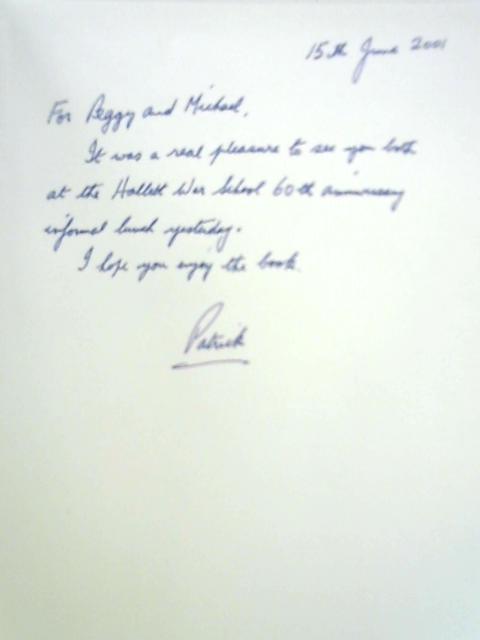 15th June 2001
For Peggy and Michael,
It was a real pleasure to see you both
at the Hallett War School 60th anniversary
informal lunch yesterday.
I hope you enjoy the book.
Patrick